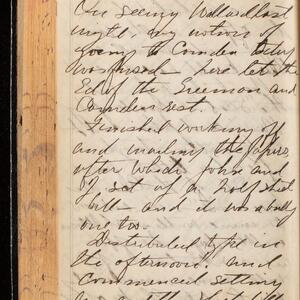 On seeing Wallard last
night, my notion of
going to Camden
was fixed - here let the
Ed of the Freeman and
Camden rest.
Finished working off
and mailing the papers,
after which John and
I set up a half sheet
bill - and it was a bully
one too.
Distributed type in
the afternoon, and
commenced setting